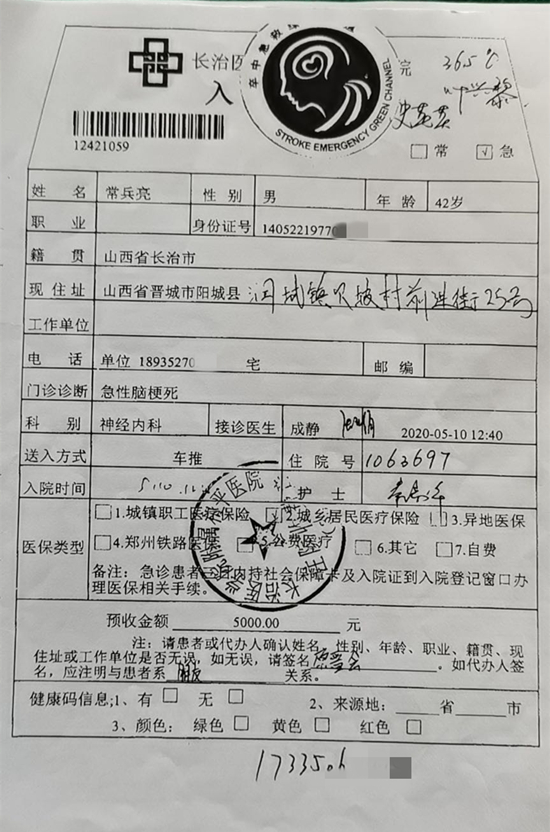 长治医 卒中急救绿 院 36.5℃
入
STROKE EMERGENCY GREEN CHANNEL
12421059
□ 常 ☑ 急
姓 名 常兵亮 性 别 男 年 龄 42岁
职 业 身份证号 1405221977
籍 贯 山西省长治市
现 住 址 山西省晋城市阳城县 润城镇 坡村前进街25号
工作单位
电 话 单位 18935270 宅 邮 编
门诊诊断 急性脑梗死
科 别 神经内科 接诊医生 成静 2020-05-10 12:40
送入方式 车推 住 院 号 1063697
入院时间 护 士
医保类型 □1.城镇职工医疗保险 ☑2.城乡居民医疗保险 □3.异地医保
□4.郑州铁路医保 □5.公费医疗 □6.其它 □7.自费
备注：急诊患者 日内持社会保障卡及入院证到入院登记窗口办
理医保相关手续。
长治医学院附属和平医院
预收金额 5000.00 元
注：请患者或代办人确认姓名，性别、年龄、职业、籍贯、现
住址或工作单位是否无误，如无误，请签名 。如代办人签
名，应注明与患者系 朋友 关系。
健康码信息;1、有 □ 无 □ 2、来源地： 省 市
3、颜色： 绿色 □ 黄色 □ 红色 □